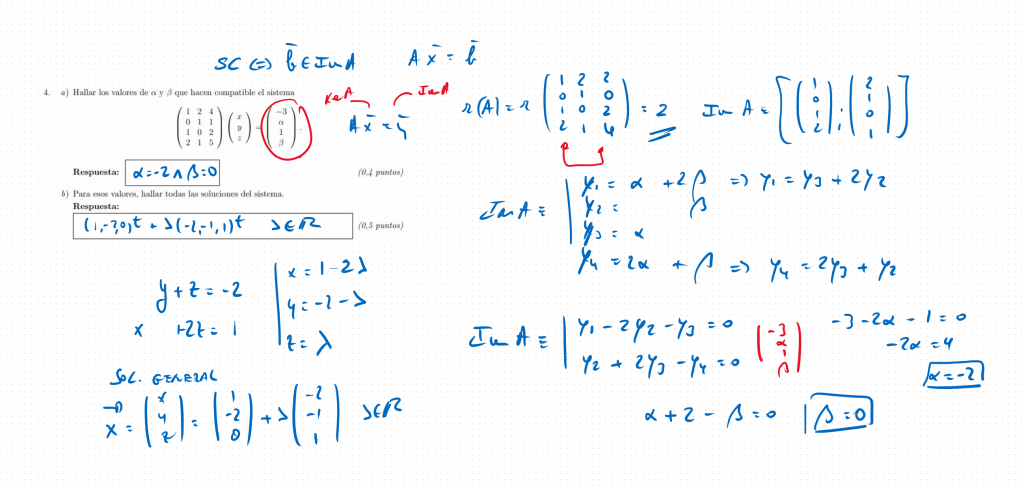 SC ⇔ b̄ ∈ Im A    A x̄ = b̄
4. a) Hallar los valores de α y β que hacen compatible el sistema
( 1 2 4
0 1 1
1 0 2
2 1 5 ) ( x
y
z ) = ( −3
α
1
β ).
Respuesta: α=-2 ∧ β=0 (0,4 puntos)
b) Para esos valores, hallar todas las soluciones del sistema.
Respuesta:
(1,-2,0)ᵗ + λ(-2,-1,1)ᵗ λ∈ℝ (0,5 puntos)
Ker A    Im A
A x̄ = ȳ
r(A) = r ( 1 2 2
0 1 0
1 0 2
2 1 4 ) = 2
Im A = [ ( 1
0
1
2 ) ; ( 2
1
0
1 ) ]
Im A ≡ | y₁ = α + 2β ⇒ y₁ = y₃ + 2y₂
y₂ = β
y₃ = α
y₄ = 2α + β ⇒ y₄ = 2y₃ + y₂
y + z = -2
x +2z = 1
| x = 1 - 2λ
y = -2 - λ
z = λ
Im A ≡ | y₁ - 2y₂ - y₃ = 0
y₂ + 2y₃ - y₄ = 0
( -3
α
1
β )
-3 -2α - 1 = 0
-2α = 4
α = -2
α + 2 - β = 0    β = 0
SOL. GENERAL
x⃗ = ( x
y
z ) = ( 1
-2
0 ) + λ ( -2
-1
1 ) λ∈ℝ